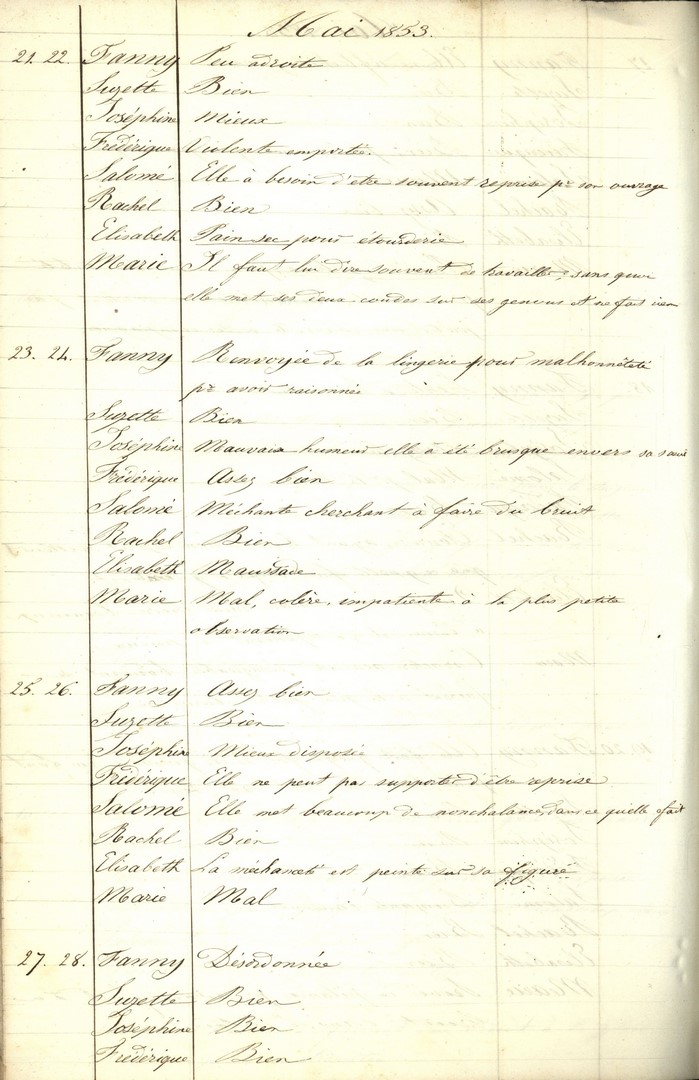 Mai 1853.
21. 22. Fanny Peu adroite
Suzette Bien
Joséphine Mieux
Frédérique Violente emportée.
Salomé Elle à besoin d'etre souvent reprise pr son ouvrage
Rachel Bien
Elisabeth Pain sec pour étourderie
Marie Il faut lui dire souvent de travailler, sans quoi
elle met ses deux coudes sur ses genoux et ne fait rien
23. 24. Fanny Renvoyée de la lingerie pour malhonnêteté
pr avoir raisonnée
Suzette Bien
Joséphine Mauvaise humeur elle à été brusque envers sa sœur
Frédérique Assez bien
Salomé Méchante cherchant à faire du bruit
Rachel Bien
Elisabeth Maussade
Marie Mal, colère, impatiente à la plus petite
observation
25. 26. Fanny Assez bien
Suzette Bien
Joséphine Mieux disposée
Frédérique Elle ne peut pas supporter d'être reprise
Salomé Elle met beaucoup de nonchalance dans ce quelle fait
Rachel Bien
Elisabeth La méchanceté est peinte sur sa figure
Marie Mal
27. 28. Fanny Désordonnée
Suzette Bien
Joséphine Bien
Frédérique Bien